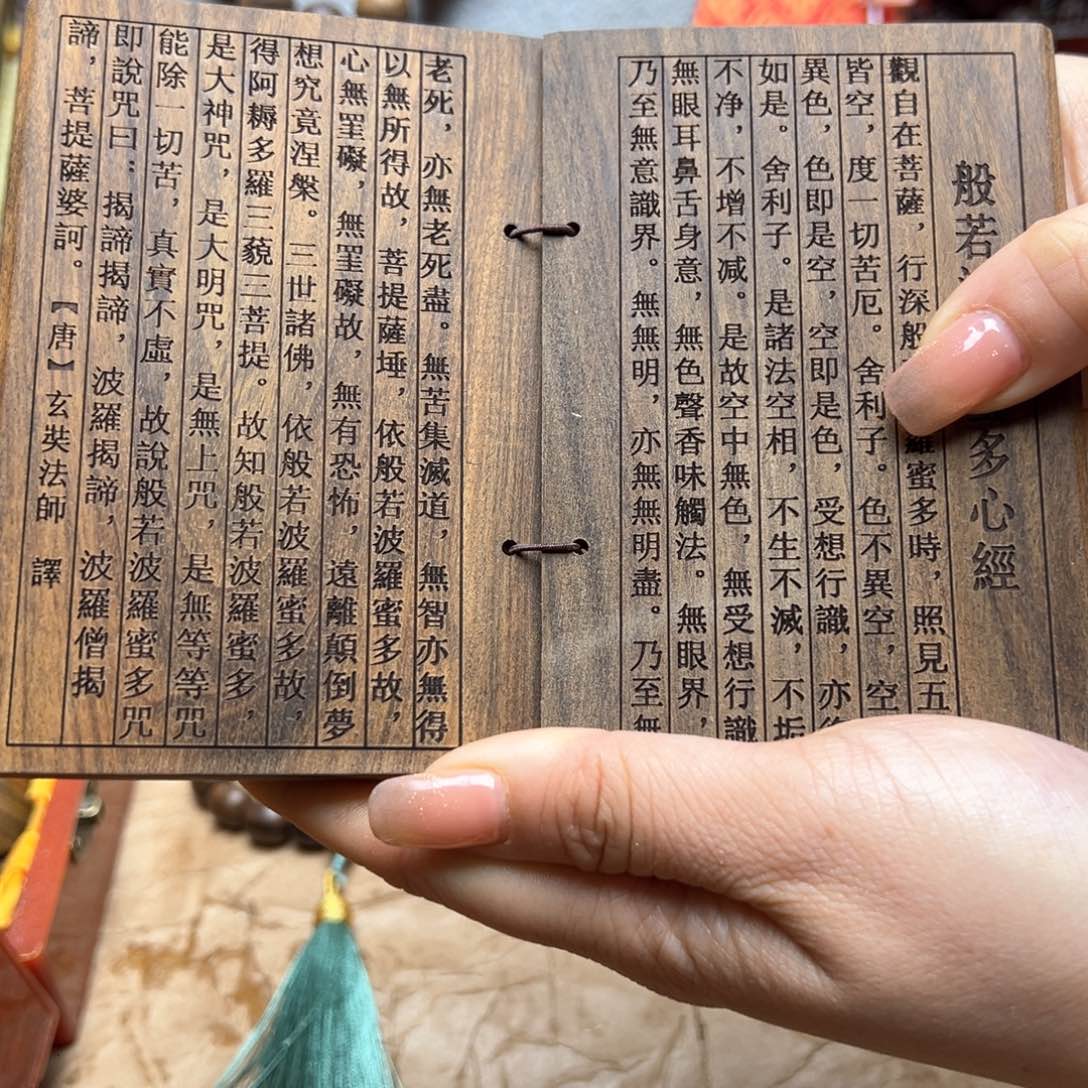 般若多心經
觀自在菩薩，行深般羅蜜多時，照見五
皆空，度一切苦厄。舍利子。色不異空，空
異色，色即是空，空即是色，受想行識，亦
如是。舍利子。是諸法空相，不生不滅，不垢
不净，不增不减。是故空中無色，無受想行識
無眼耳鼻舌身意，無色聲香味觸法。無眼界，
乃至無意識界。無無明，亦無無明盡。乃至無
老死，亦無老死盡。無苦集滅道，無智亦無得
以無所得故，菩提薩埵，依般若波羅蜜多故，
心無罣礙，無罣礙故，無有恐怖，遠離顛倒夢
想究竟涅槃。三世諸佛，依般若波羅蜜多故，
得阿耨多羅三藐三菩提。故知般若波羅蜜多，
是大神咒，是大明咒，是無上咒，是無等等咒
能除一切苦，真實不虛，故說般若波羅蜜多咒
即說咒曰：揭諦揭諦，波羅揭諦，波羅僧揭
諦，菩提薩婆訶。【唐】玄奘法師 譯